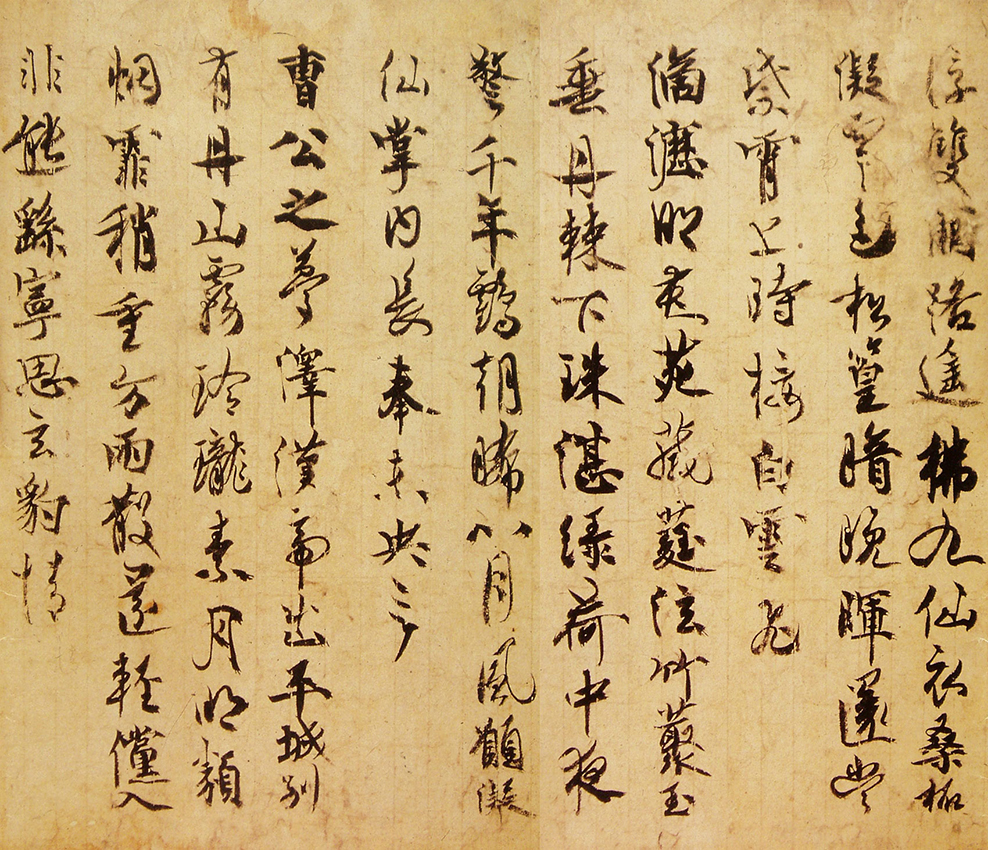 浮雙闕路遥拂九仙衣桑柘
凝寒色松篁暗晚暉還當
紫霄上時接白雲飛
滴瀝明苑葳蕤泫竹叢玉
垂丹棘下珠湛緑荷中夜
警千年鶴朝晞八月風願凝
仙掌内長奉未央宮
曹公之夢澤漢帝出平城別
有丹山霧玲瓏素月明類
烟霏稍重方雨散還輕儻入
非熊繇寧思玄豹情